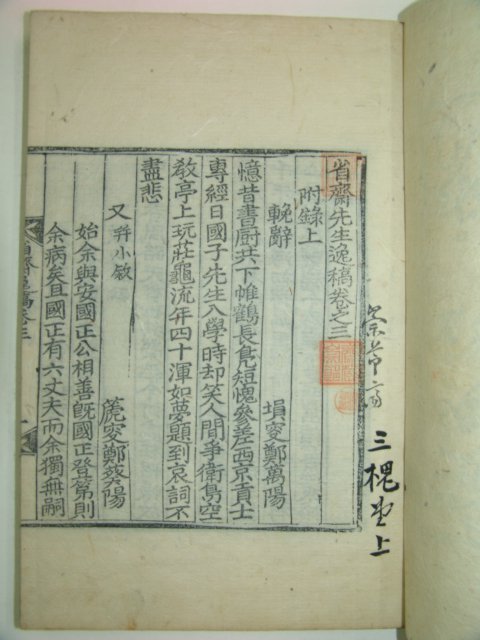 省齋先生逸稿卷之三
附錄上
輓辭
塤叟鄭萬陽
憶昔書厨共下帷鶴長鳧短愧參差西京貢士
專經日國子先生入學時却笑人間爭衛鳥空
敎亭上玩莊龜流年四十渾如夢題到哀詞不
盡悲
又幷小敘
篪叟鄭葵陽
始余與安國正公相善旣國正登第則
余病矣且國正有六丈夫而余獨無嗣
省齋逸稿卷三
一
三槐堂上